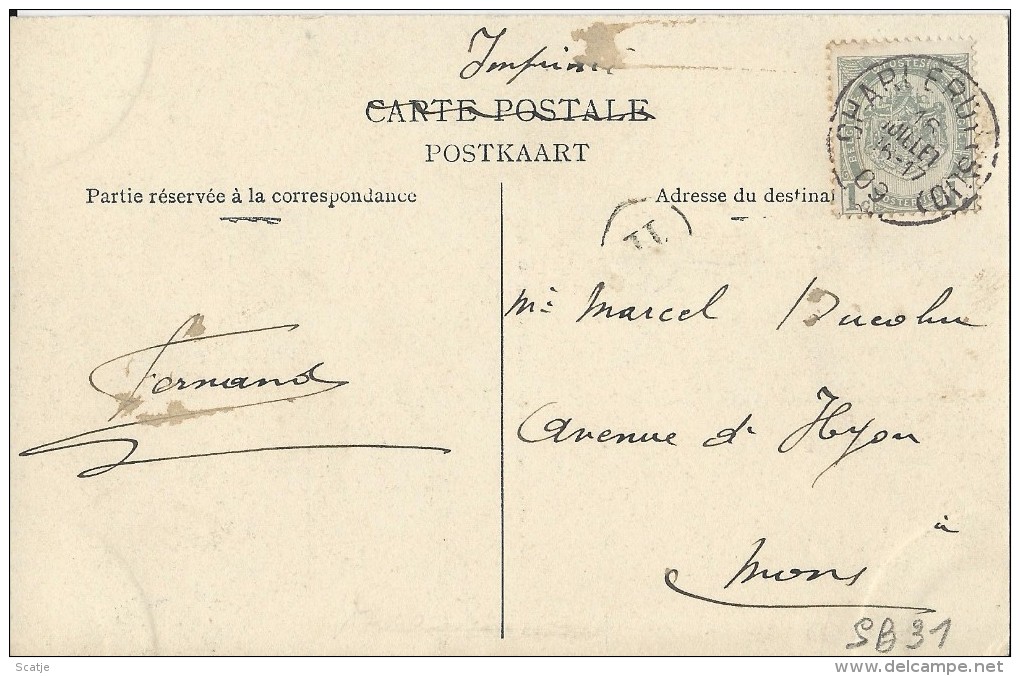 Imprimé
CARTE POSTALE
POSTKAART
Partie réservée à la correspondance
Adresse du destina
CHARLEROY (SUD)
15
JUILLET
16-17
09
POSTES
1
Mr Marcel
Fernand
Avenue d'Hyon
à
Mons
SB31
Scatje
www.delcampe.net